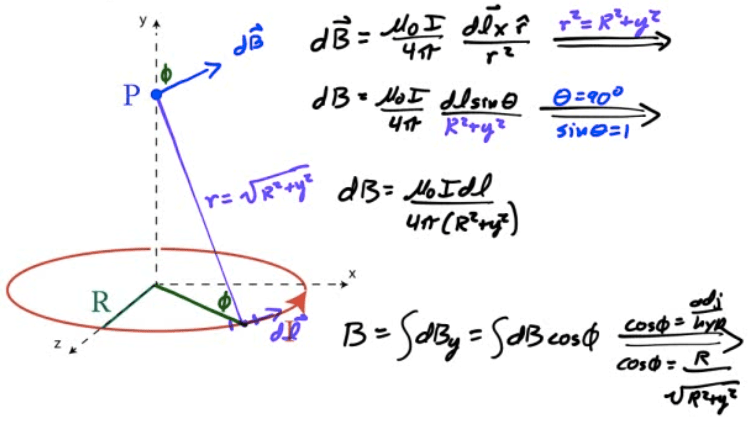 y
dB⃗
ϕ
P
r = √R²+y²
R
ϕ
x
z
dl⃗
I
dB⃗ = μ₀I/4π dl⃗ x r̂/r² r² = R²+y²
dB = μ₀I/4π dlsinθ/R²+y² θ=90° sinθ=1
dB = μ₀Idl/4π(R²+y²)
B = ∫dBy = ∫dB cosϕ cosϕ = adj/hyp
cosϕ = R/√R²+y²